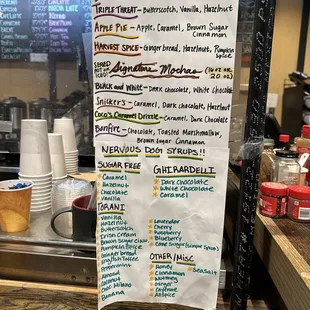 Triple Threat - Butterscotch, Vanilla, Hazelnut
Apple Pie - Apple, Caramel, Brown Sugar
Cinnamon
Harvest Spice - Gingerbread, Hazelnut, Pumpkin
Spice
Signature Mochas
20 oz.
Black and White - Dark chocolate, White Chocolate
Snickers - Caramel, Dark chocolate, Hazelnut
Coco's Caramel Drizzle - Caramel, Dark chocolate
Bonfire - Chocolate, Toasted Marshmallow,
Brown Sugar Cinnamon
Nervous Dog Syrups!!
Sugar Free
Caramel
Hazelnut
Chocolate
Caramel
Vanilla
Torani
Vanilla
Hazelnut
Butterscotch
Irish Cream
Brown Sugar Cinn
Pumpkin Spice
Gingerbread
English Toffee
Peppermint
Almond
Coconut
Choc Milano
Banana
Ghirardelli
Dark Chocolate
White Chocolate
Caramel
Lavender
Cherry
Raspberry
Blueberry
Cane Sugar (Simple Syrup)
Other/Misc
Honey
Sea Salt
Cinnamon
Nutmeg
Ginger
Cayenne
Allspice